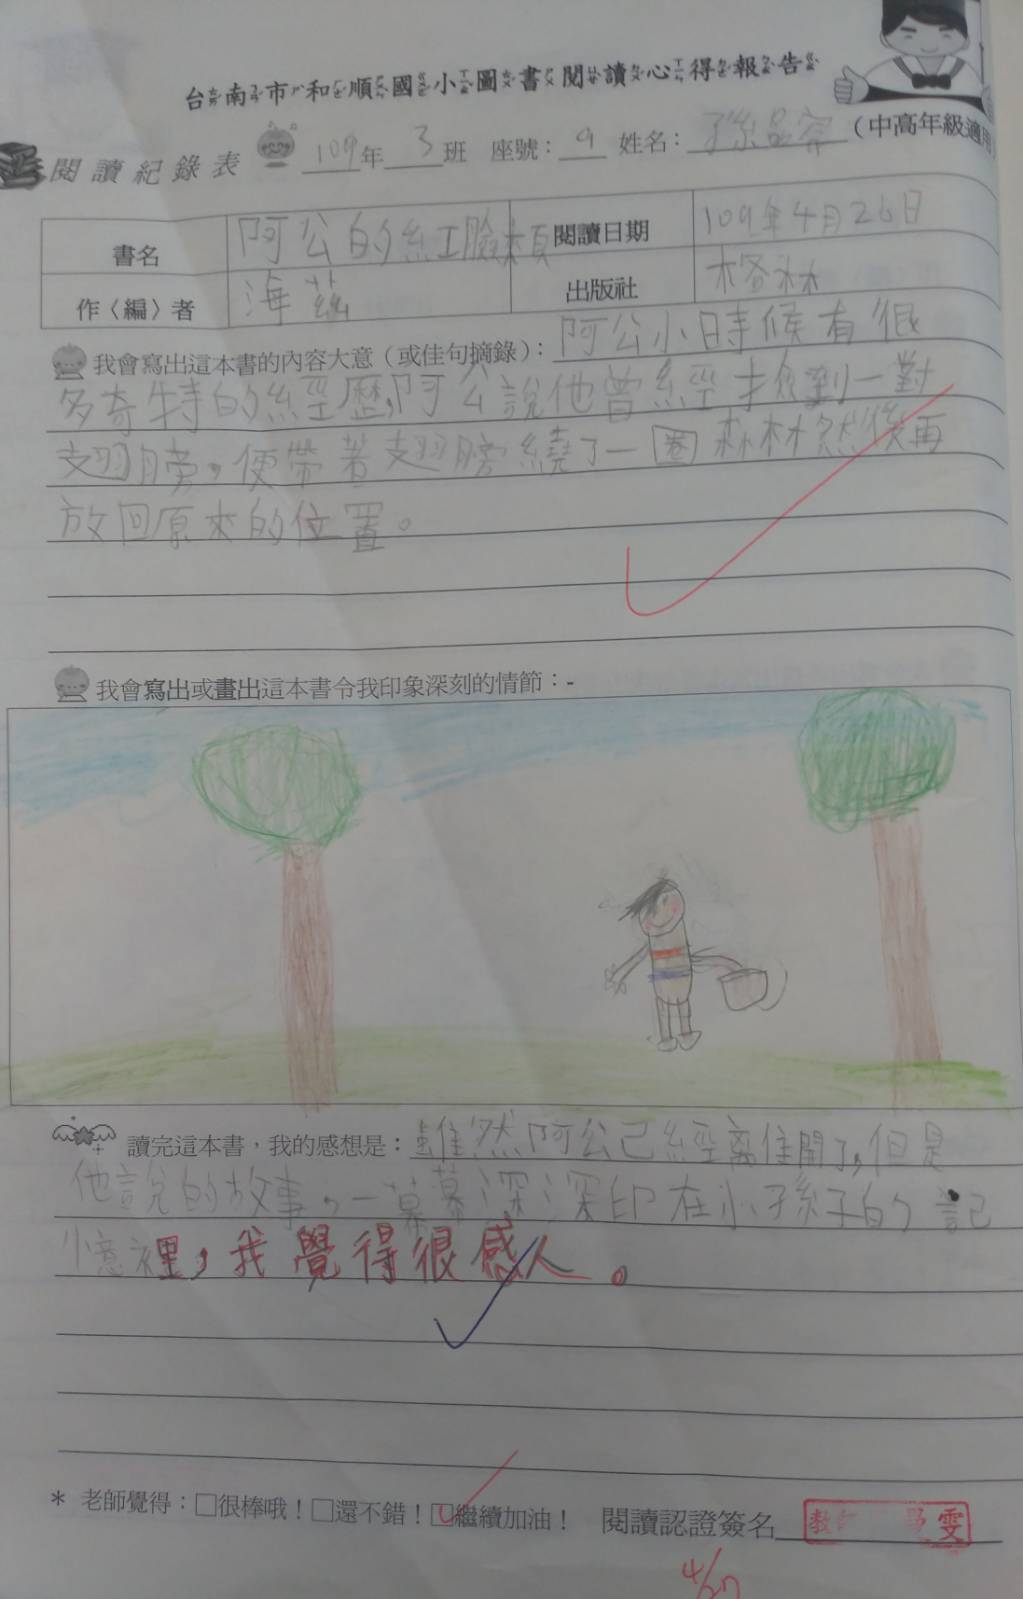 台南市和順國小圖書閱讀心得報告
閱讀紀錄表 109年 3班 座號：9 姓名：孫品 （中高年級適用
書名 阿公的紅臉頰 閱讀日期 109年4月26日
作〈編〉者 海茲 出版社 格林
我會寫出這本書的內容大意（或佳句摘錄）：阿公小時候有很
多奇特的經歷，阿公說他曾經撿到一對
翅膀，便帶著翅膀繞了一圈森林然後再
放回原來的位置。
我會寫出或畫出這本書令我印象深刻的情節：-
讀完這本書，我的感想是：雖然阿公已經離開了，但是
他說的故事，一幕幕深深印在小孫子的記
憶裡，我覺得很感人。
* 老師覺得：□很棒哦！□還不錯！□繼續加油！ 閱讀認證簽名 教 雯
4/27